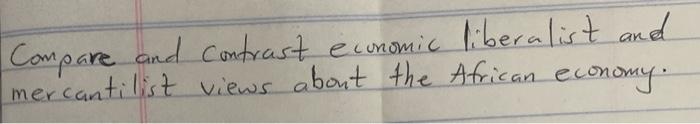 Compare and contrast economic liberalist and
mercantilist views about the African economy.